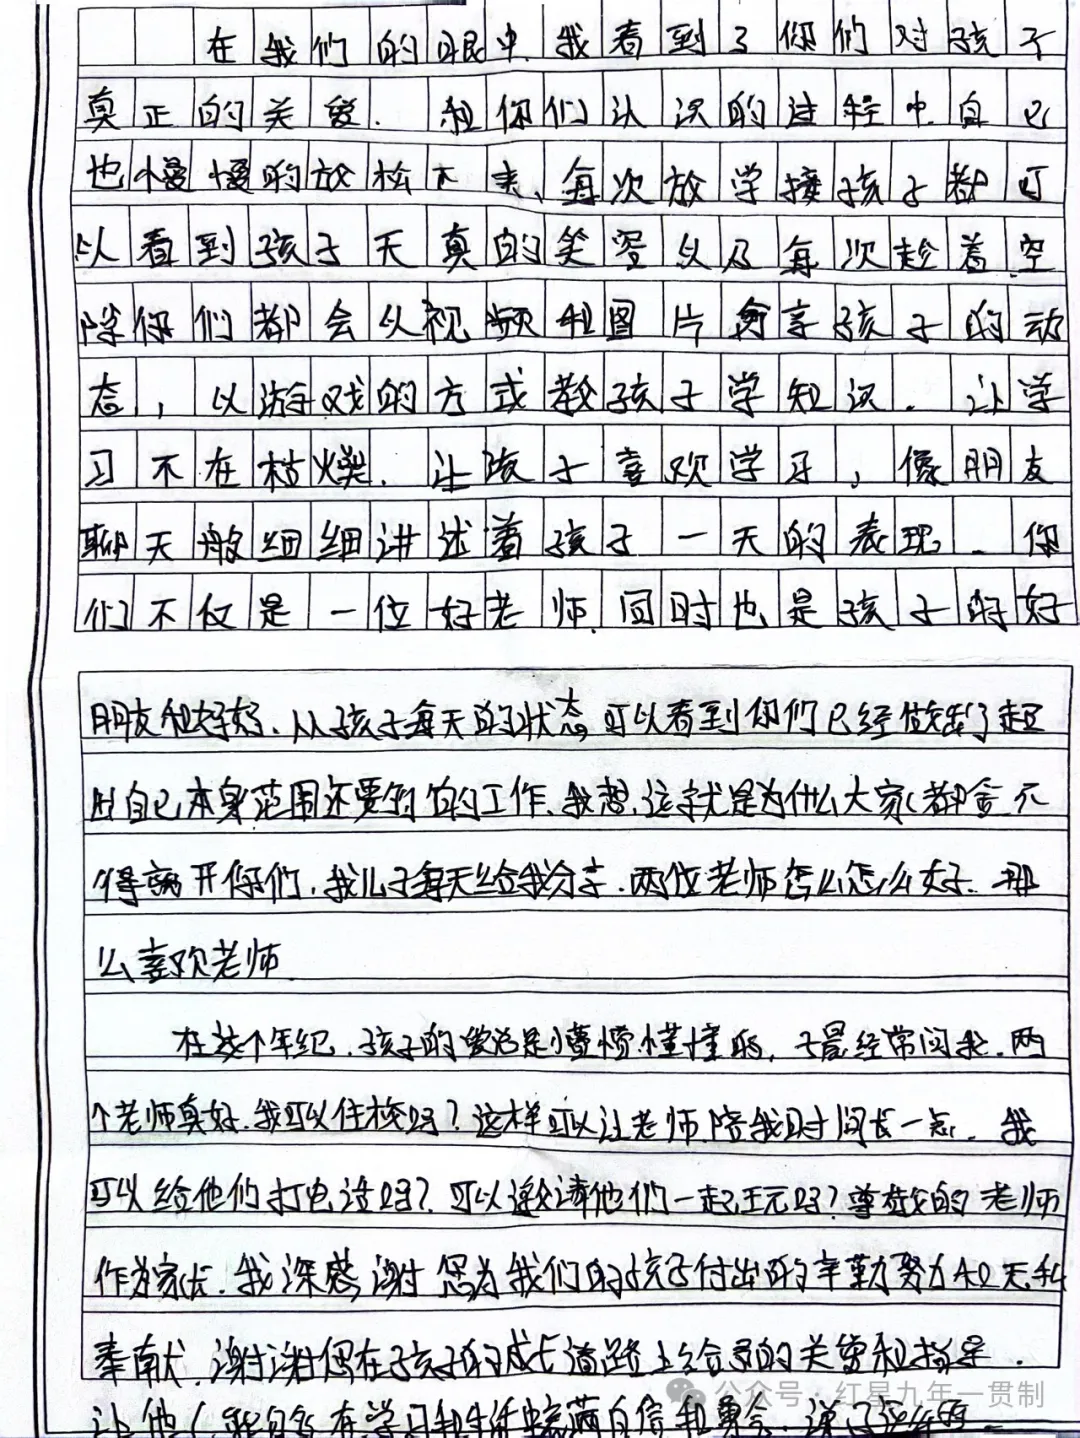 在我们的眼中,我看到了你们对孩子
真正的关爱.和你们认识的过程中自己
也慢慢的放松下来、每次放学接孩子都可
以看到孩子天真的笑容以及每次趁着空
隙你们都会以视频和图片分享孩子的动
态,以游戏的方式教孩子学知识.让学
习不在枯燥.让孩子喜欢学习,像朋友
聊天般细细讲述着孩子一天的表现.你
们不仅是一位好老师.同时也是孩子的好
朋友和好.从孩子每天的状态可以看到你们已经做到了超
出自己本身范围还要的工作、我想,这就是为什么大家都舍不
得离开你们,我儿子每天给我分享.两位老师怎么怎么好.那
么喜欢老师
在这个年纪.孩子的爱总是懵懵懂懂的,子晨经常问我.两
个老师真好.我可以住校吗?这样可以让老师陪我时间长一点.我
可以给他们打电话吗?可以邀请他们一起玩吗?尊敬的老师
作为家长.我深感谢您为我们的孩子付出的辛勤努力和无私
奉献.谢谢您在孩子的成长道路上给予的关爱和指导.
让他们能够在学习和生活中充满自信和勇气.
公众号·红星九年一贯制